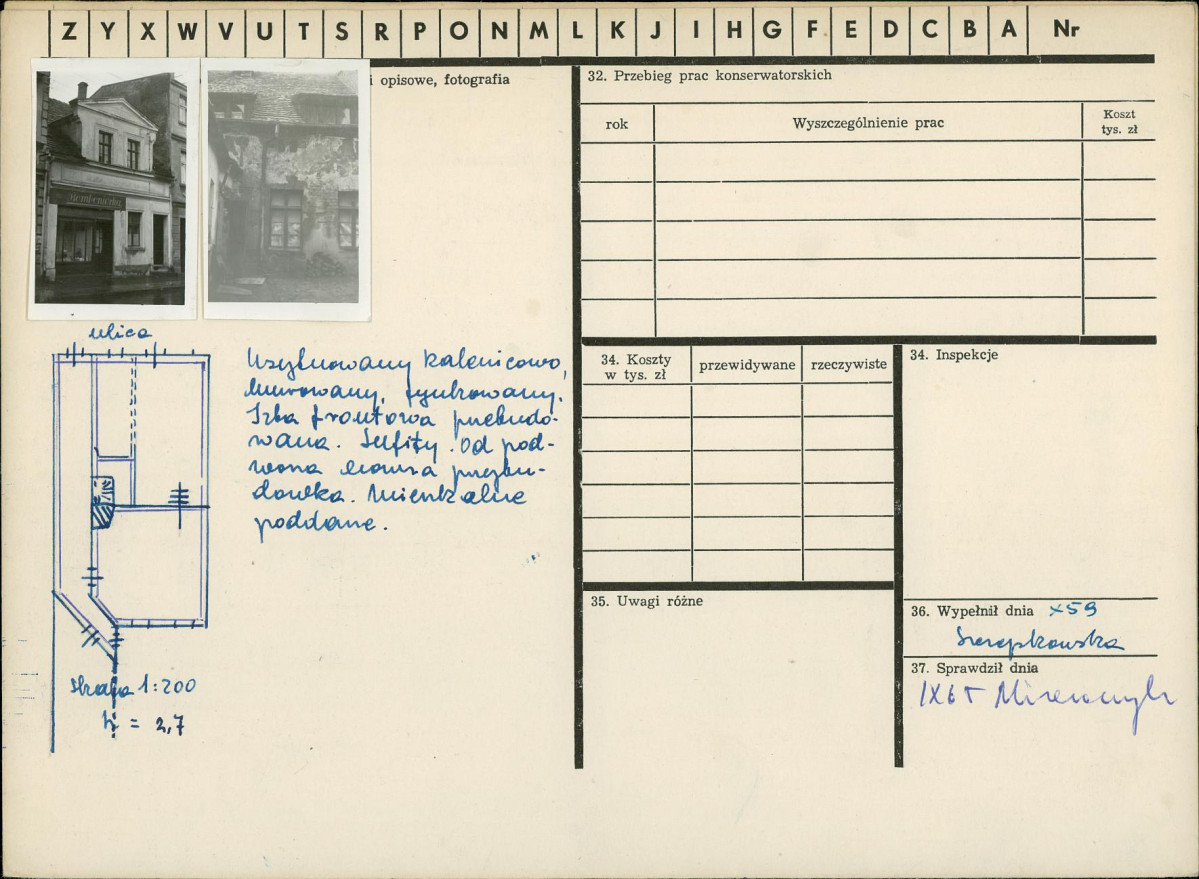 Z Y X W V U T S R P O N M L K J I H G F E D C B A Nr
i opisowe, fotografia
ulica
Usytuowany kalenicowo,
murowany, tynkowany.
Izba frontowa przebudo-
wana. Sufity. Od pod-
wórza nowsza przybu-
dówka. Mieszkalne
poddasze.
skala 1:200
h = 2,7
32. Przebieg prac konserwatorskich
rok
Wyszczególnienie prac
Koszt
tys. zł
34. Koszty
w tys. zł
przewidywane
rzeczywiste
34. Inspekcje
35. Uwagi różne
36. Wypełnił dnia X 59
37. Sprawdził dnia